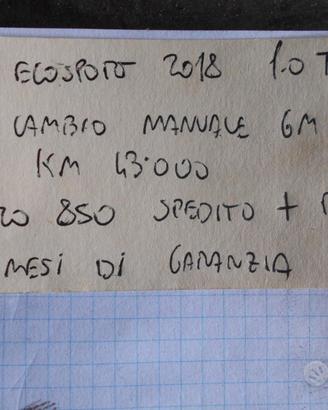 ECOSPORT 2018 1.0 T
CAMBIO MANUALE 6M
KM 43.000
850 SPEDITO +
MESI DI GARANZIA